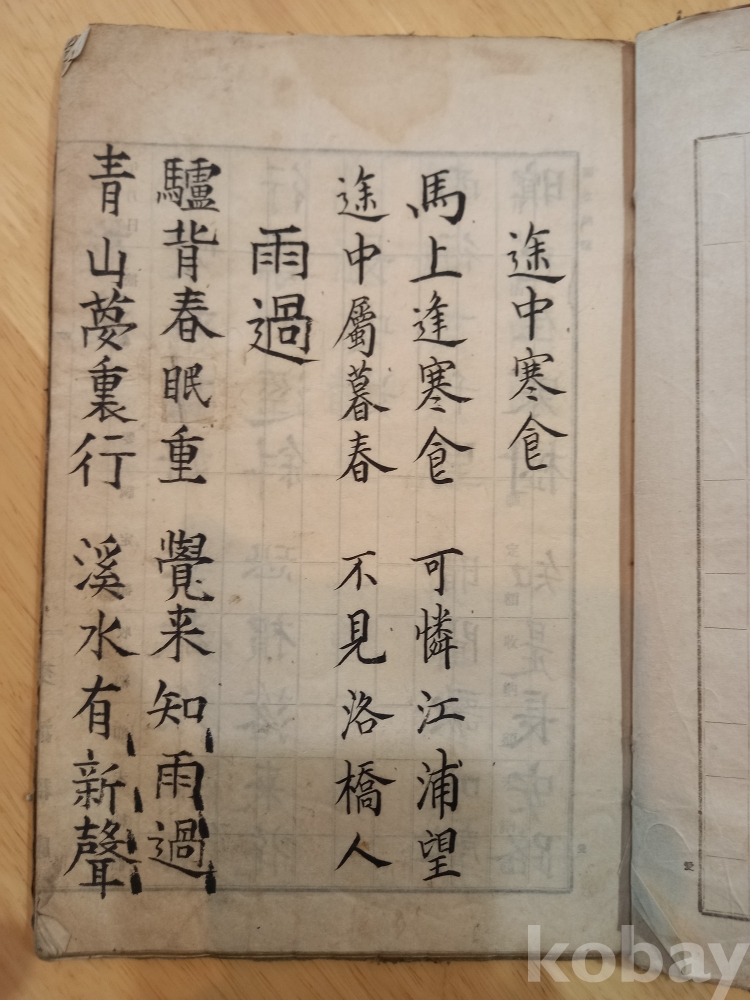 途中寒食
馬上逢寒食 可憐江浦望
途中屬暮春 不見洛橋人
雨過
驢背春眠重 覺来知雨過
青山夢裏行 溪水有新聲
kobay